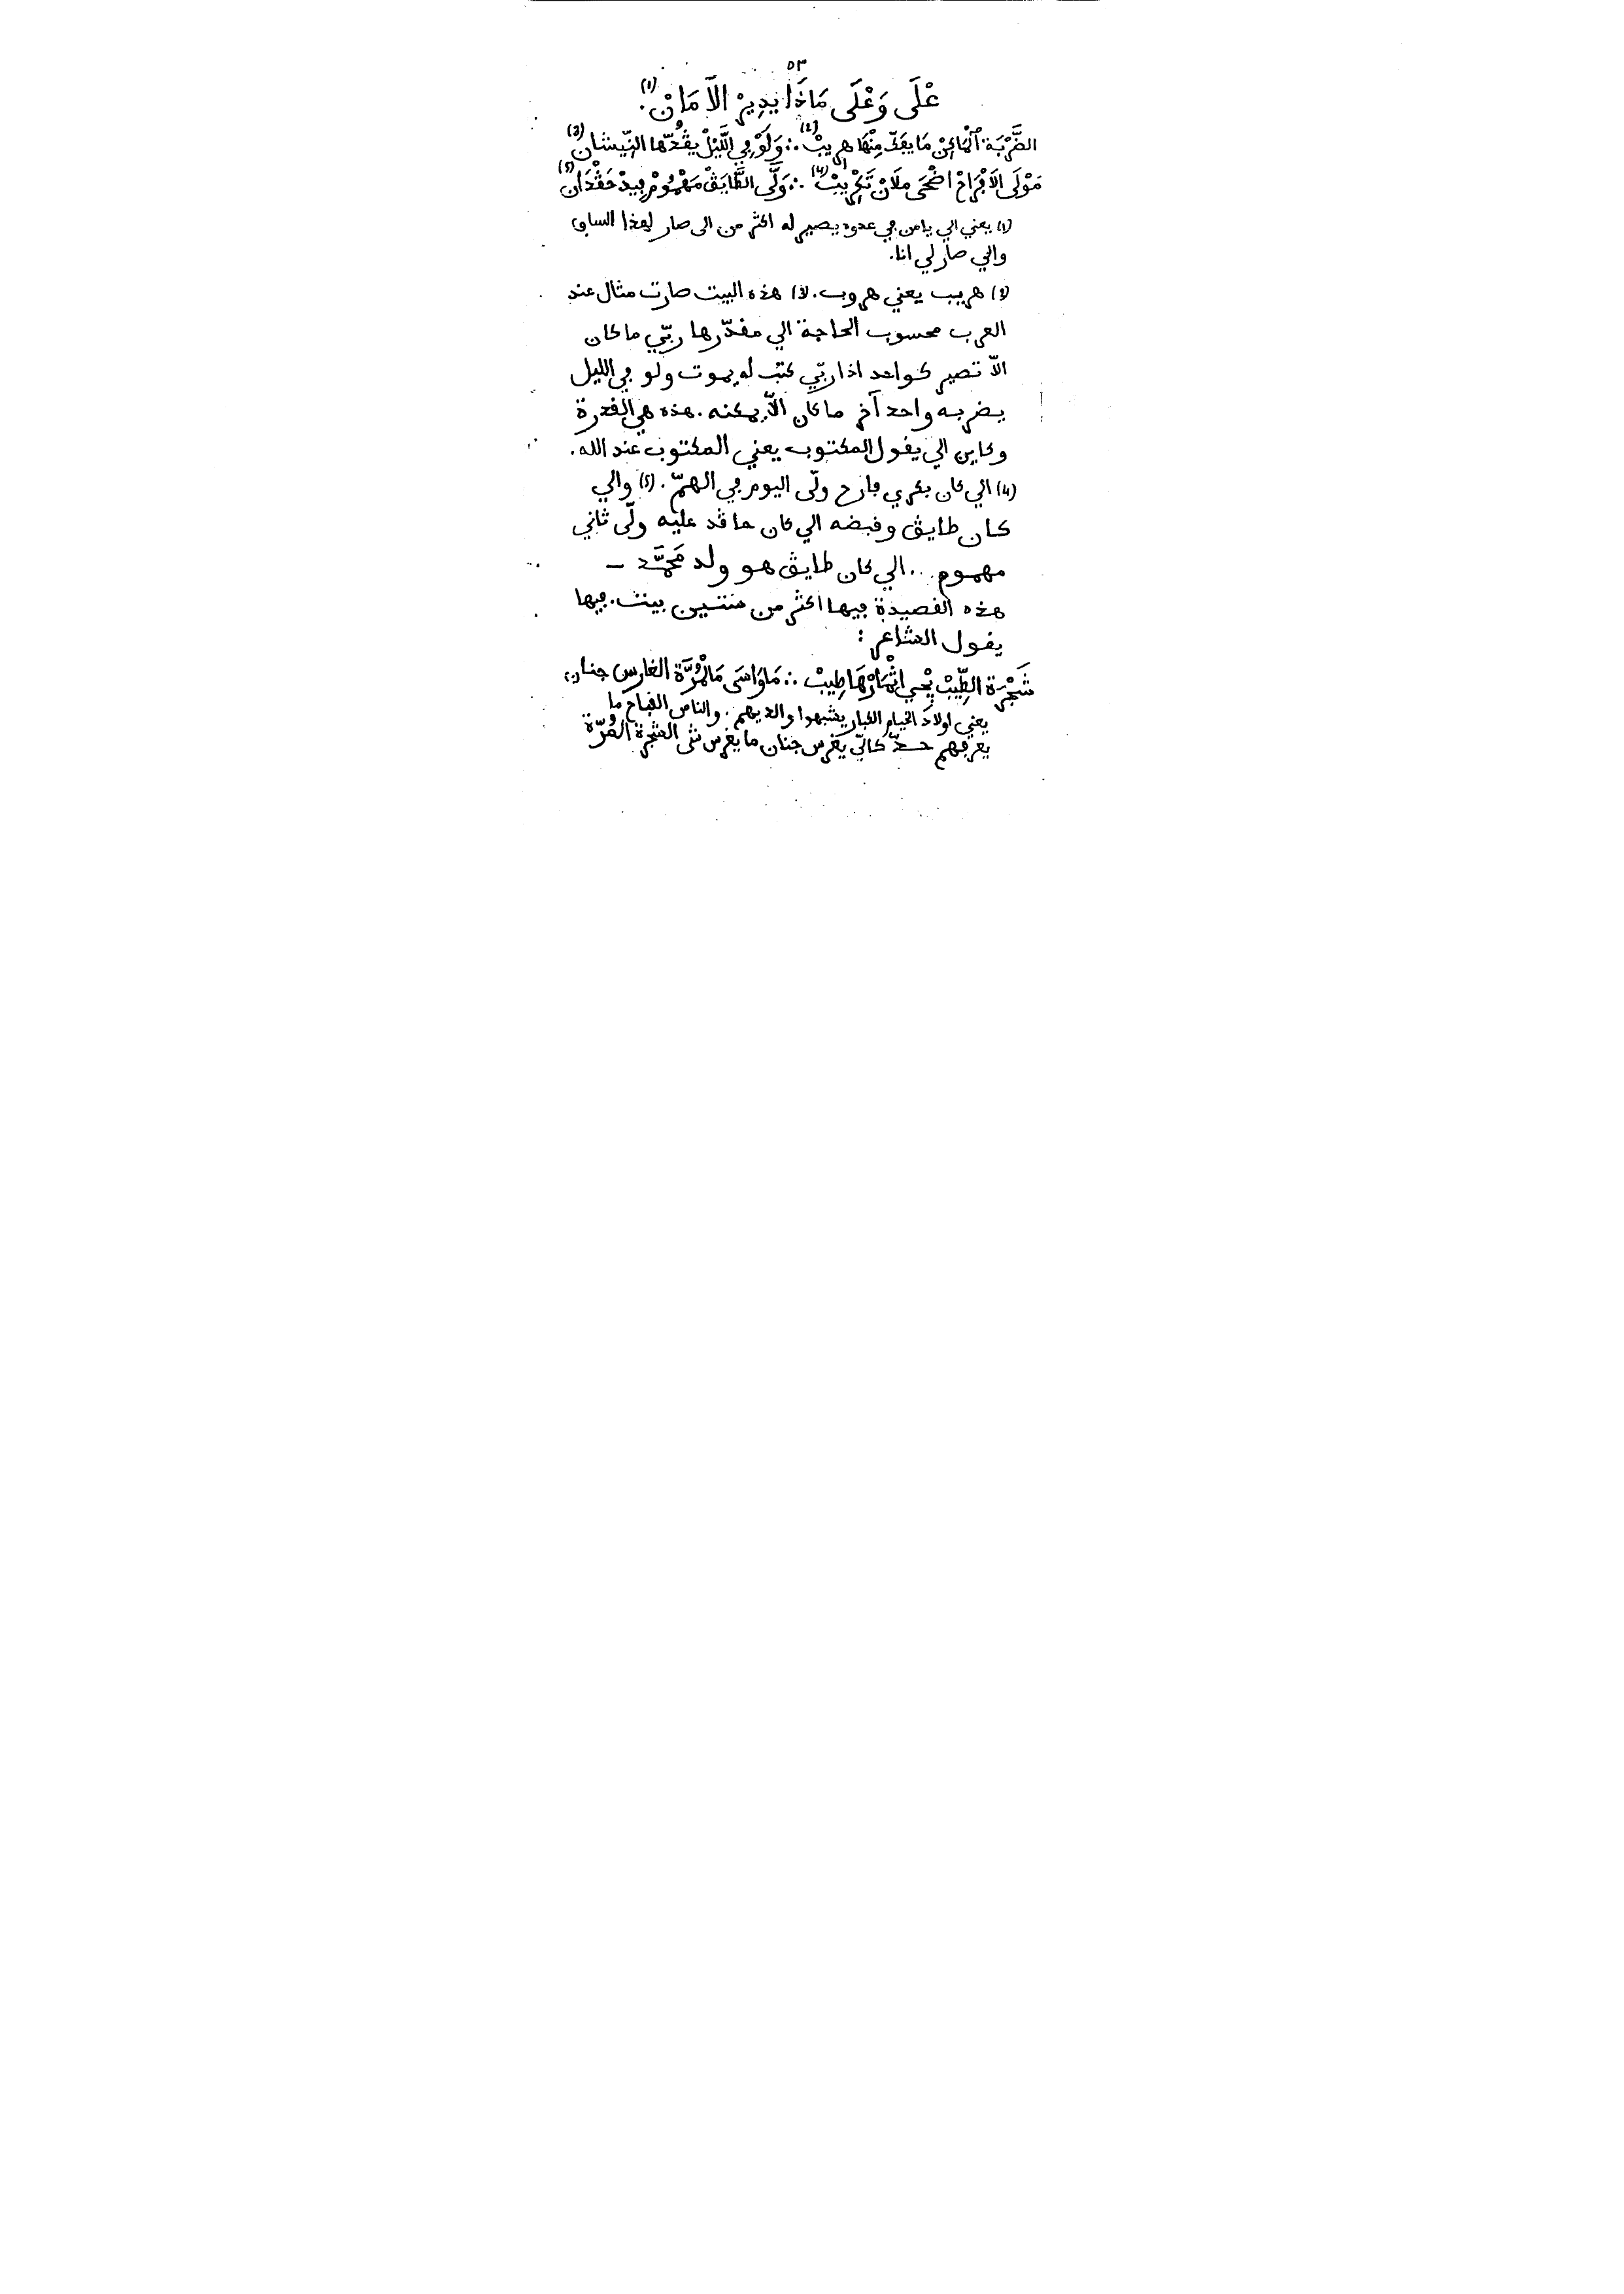 ٥٣
عْلَى وَعْلَى مَاذَا يدِيرْ الَامَانْ(1).
الضَّرْبَة ٱلْكَايْنْ مَا يڢَكّ مِنْهَا هريبْ(2) ∴ وَلَوْ ڢِي اللَّيْلْ يڨُدّها النِّيشان(3)
مَوْلَى الَاڢْرَاحْ اضْحَى ملَانْ تَخْرِيبْ(4) ∴ وَلَّى الطَّايَڨْ مَهْمُومْ ڢِيدْ حَڨْدَانْ(5)
(1) يعني الي يامن ڢي عدوه يصير له اكثر من الى صار لهذا السابڧ
والي صار لي انا.
(2) هريب يعني هروب. (3) هذه البيت صارت مثال عند
العرب محسوب الحاجة الي مڧدّرها ربّي ما كان
الّا تصير كواحد اذا ربّي كتب له يموت ولو ڢي الليل
يضربه واحد آخر ما كان الّا يمكنه. هذه هي الڧدرة
وكاين الي يڧول المكتوب يعني المكتوب عند الله.
(4) الي كان بكري ڢارح ولّى اليوم ڢي الهمّ. (5) والي
كان طايڨ وڧبضه الي كان حاڨد عليه ولّى ثاني
مهموم... الي كان طايڨ هو ولد مَحمَّد –
هذه الڧصيدة ڢيها اكثر من ستين بيت. ڢيها
يڧول الشاعر :
شَجْرَة الطِّيبْ يْجي اثْمَارْهَا طِيبْ ∴ مَاوَاسَى مَالْمُرَّة الغارس جنان
يعني اولاد الخيام الكبار يشبهوا والديهم. والناس الڧباح ما
يعرڢهم حدّ كالّي يغرس جنان ما يغرس شي الشجرة المُرّة